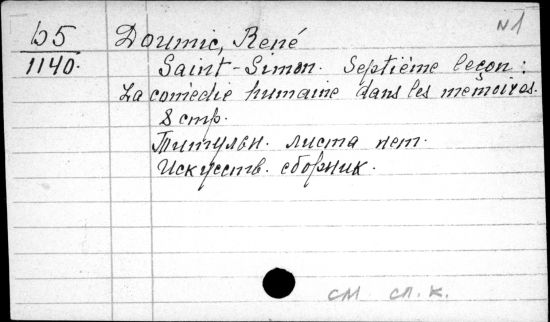 N1
Ъ5
1140.
Doumic, René
Saint-Simon. Septième leçon:
La comédie humaine dans les mémoires.
8 стр.
Титульн. листа нет.
Искусств. сборник.
см сл. к.